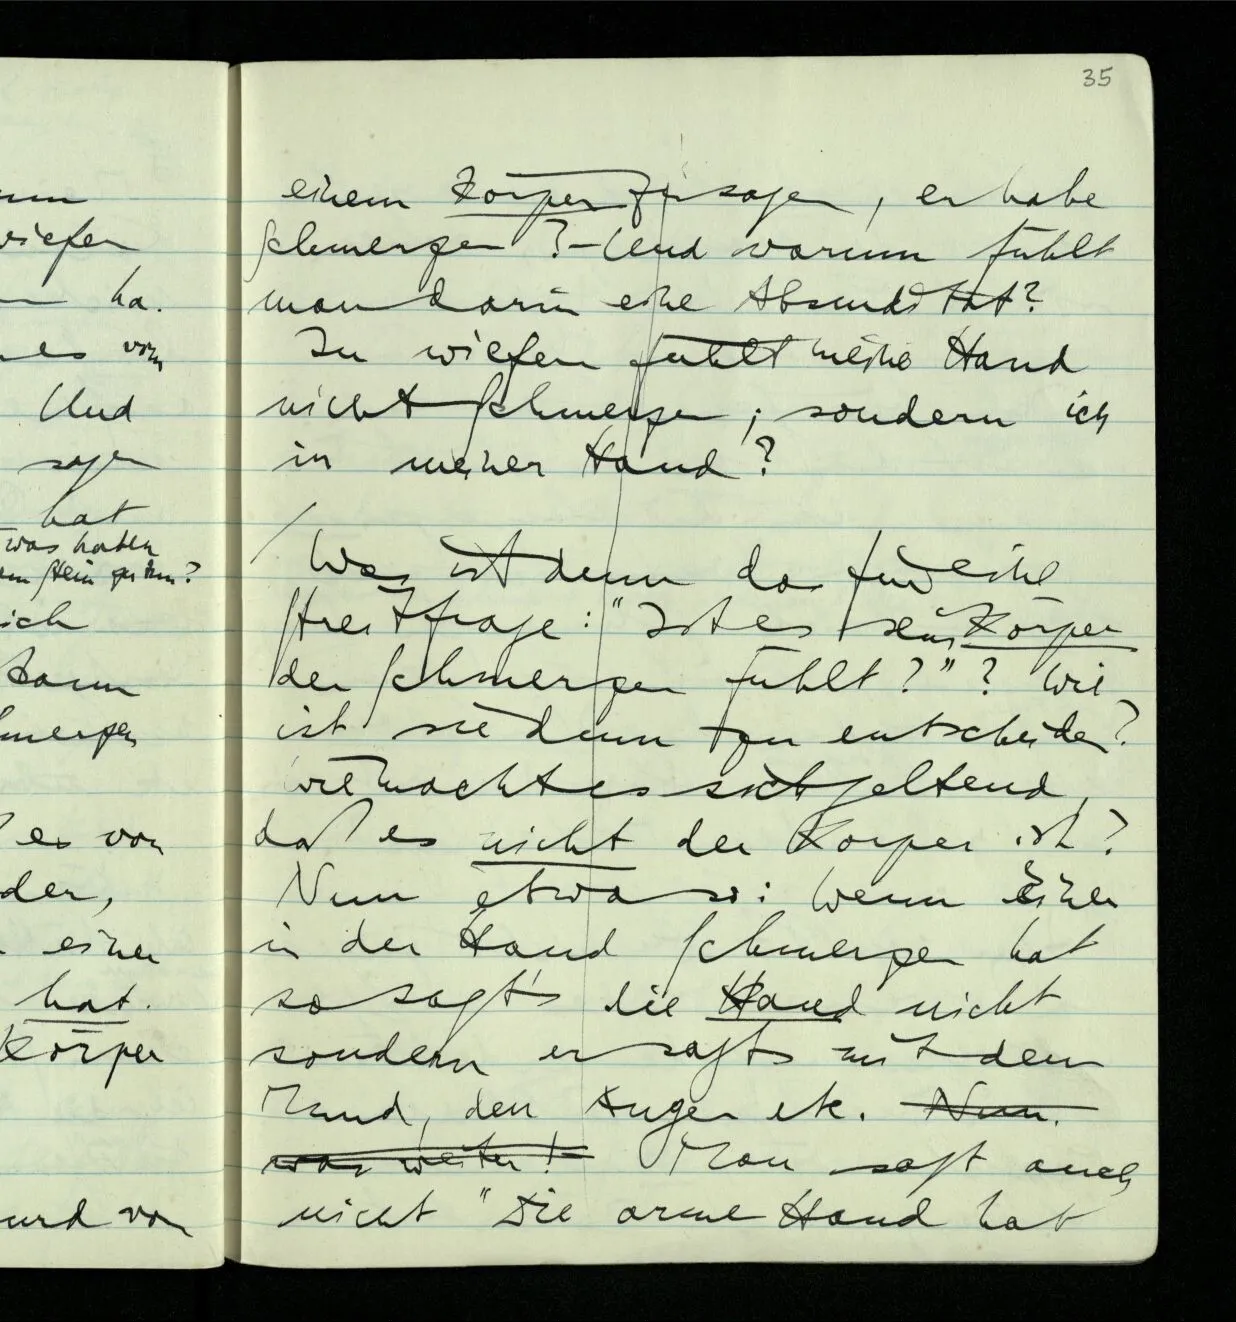 35
um
wiefer
ha.
es vom
Und
sagen
hat
was haben
Stein zu tun?
sich
kann
Schmerzen
es von
der,
einer
hat.
Körper
und von
einem Körper zu sagen, er habe
Schmerzen? – Und warum fühlt
man darin eine Absurdität?
In wiefern fühlt meine Hand
nicht Schmerzen; sondern ich
in meiner Hand?
/ Was ist denn das für eine
Streitfrage: "Ist es der Körper
der Schmerzen fühlt?"? Wie
ist sie denn zu entscheiden?
Wie macht es sich geltend,
daß es nicht der Körper ist?
Nun etwa so: Wenn Einer
in der Hand Schmerzen hat
so sagt's die Hand nicht
sondern er sagts mit dem
Mund, den Augen etc. Nun.
was weiter! Man sagt auch
nicht "Die arme Hand hat